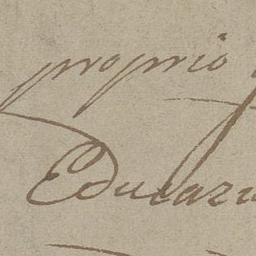 proprio
Educazi